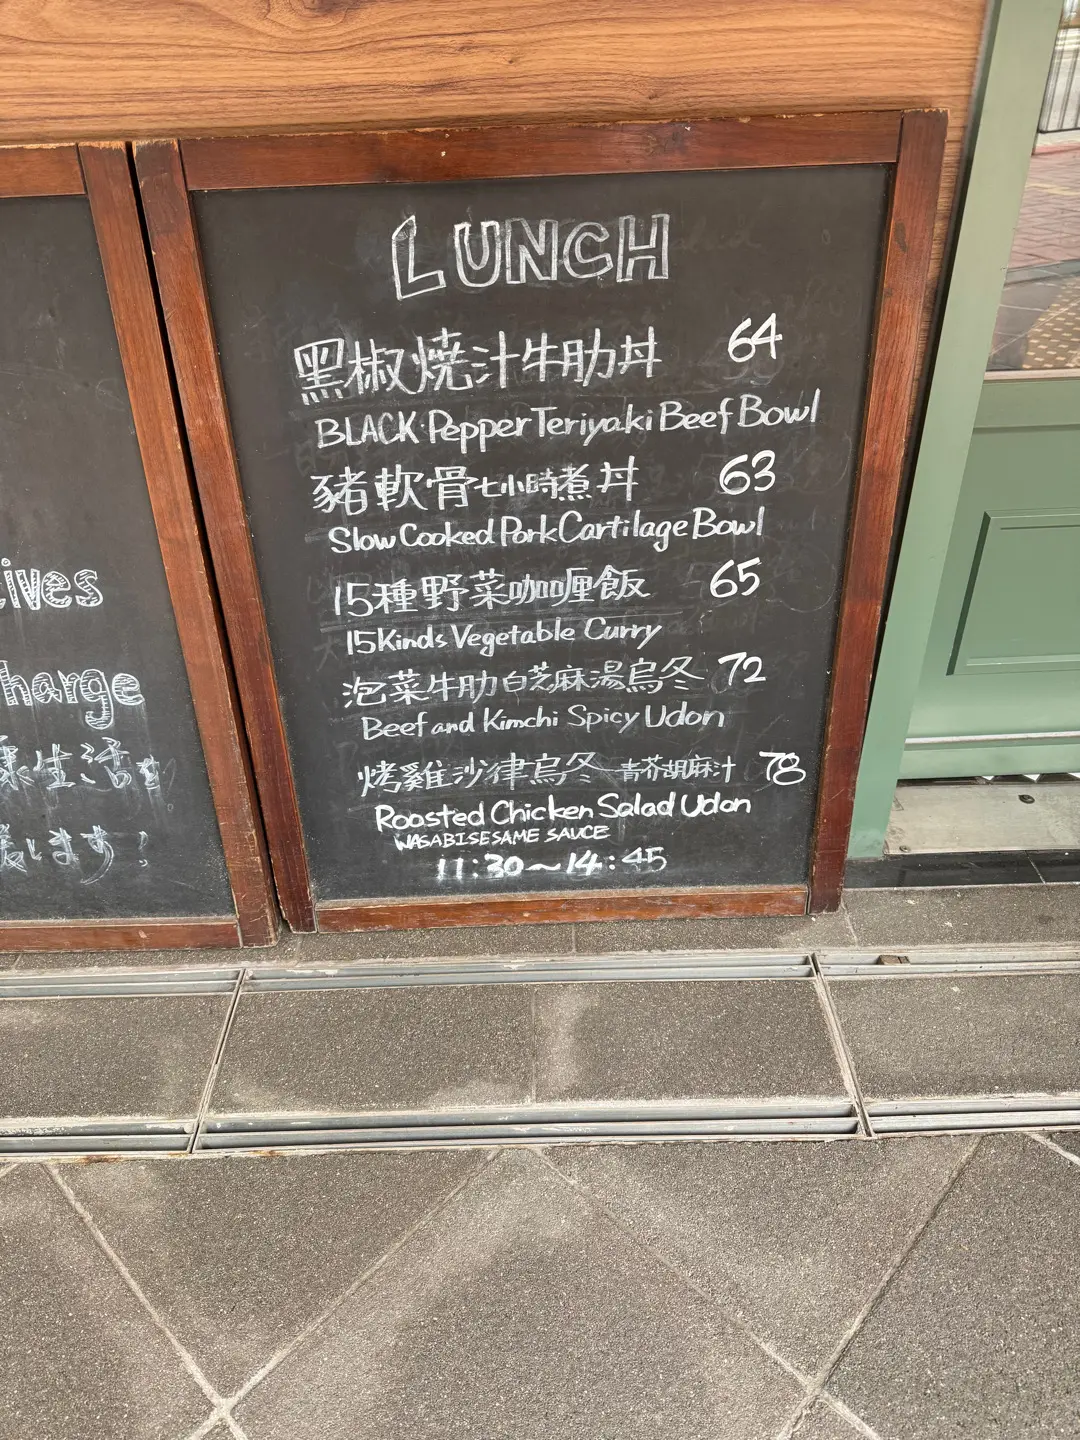 LUNCH
黑椒燒汁牛肋丼 64
BLACK Pepper Teriyaki Beef Bowl
豬軟骨七小時煮丼 63
Slow Cooked Pork Cartilage Bowl
15種野菜咖喱飯 65
15 Kinds Vegetable Curry
泡菜牛肋白芝麻湯烏冬 72
Beef and Kimchi Spicy Udon
烤雞沙律烏冬-青芥胡麻汁 78
Roasted Chicken Salad Udon
WASABI SESAME SAUCE
11:30~14:45
ives
harge
生活
ます!